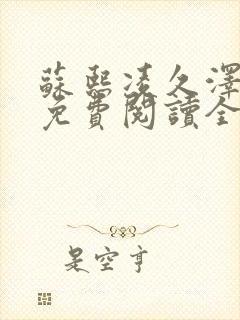 蘇熙凌久澤
免費閱讀全
是空亨